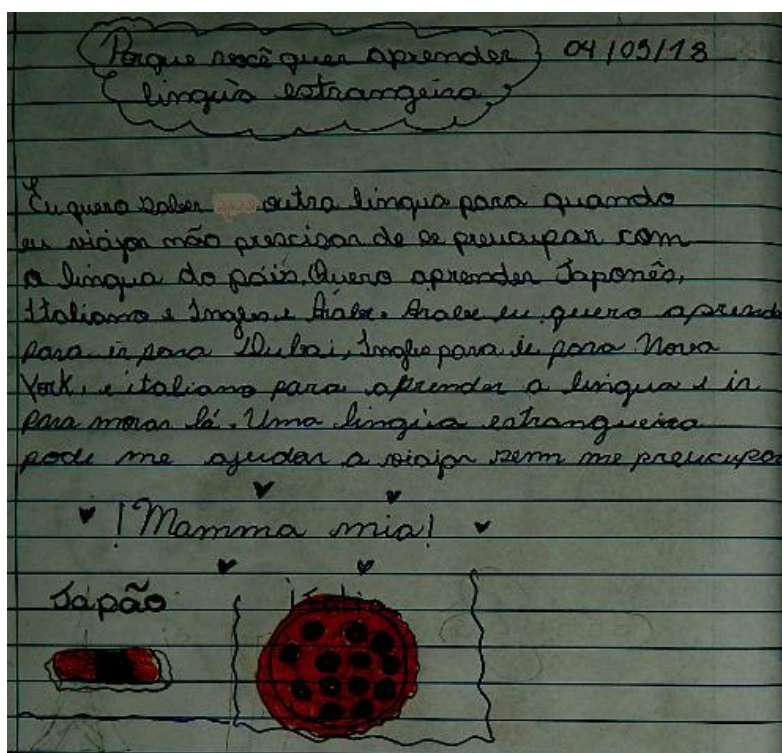 Porque você quer aprender 04/09/18
lingua estrangeira
Eu quero saber outra lingua para quando
eu viajar não prescisar de se preucupar com
a lingua do país. Quero aprender Japonês,
Italiano e Ingles e Árabe. Arabe eu quero aprende
para ir para Dubai, Ingles para ir para Nova
York, e italiano para aprender a lingua e ir
para morar lá. Uma lingúa estrangueira
pode me ajudar a viajar semm me preucupar
¡Mamma mia!
Japão Itália